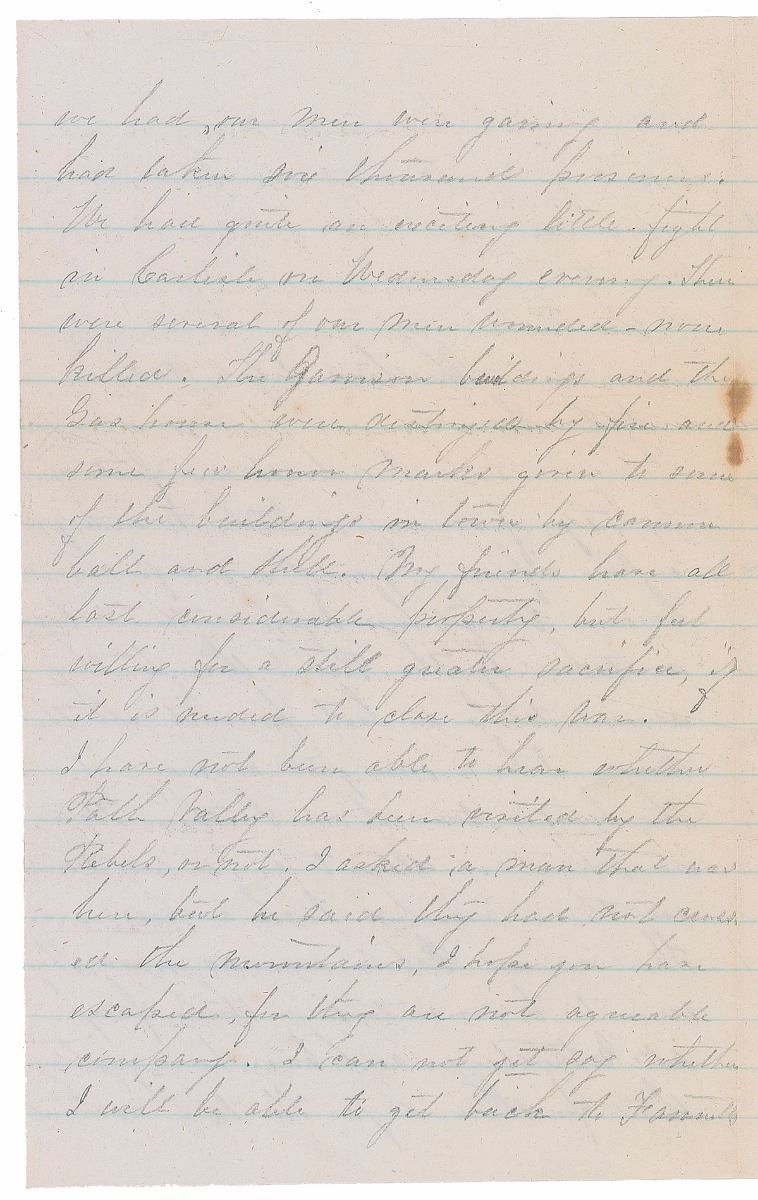 we had, our men were gaining and
had taken six thousand prisoners.
We had quite an exciting little fight
in Carlisle on Wednesday evening. There
were several of our men wounded - none
killed. The Garrison buildings and the
Gas house were destroyed by fire and
some few honor marks given to some
of the buildings in town by cannon
ball and shell. My friends have all
lost considerable property, but feel
willing for a still greater sacrifice, if
it is needed to close this war.
I have not been able to hear whether
Path Valley has been visited by the
Rebels, or not. I asked a man that was
here, but he said they had not cross
ed the mountains, I hope you have
escaped, for they are not agreeable
company. I can not yet say whether
I will be able to get back to